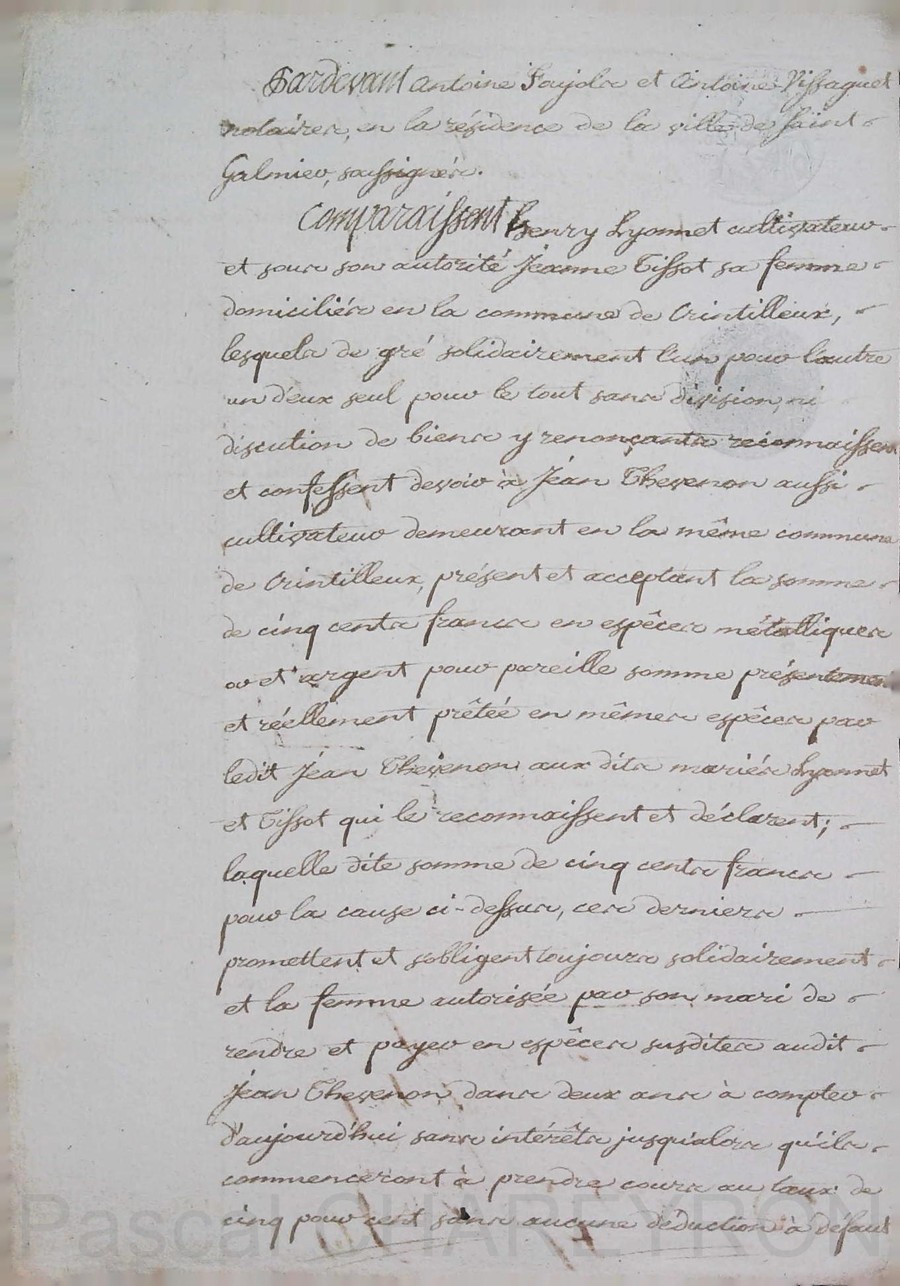 Pardevant Antoine Faujola et Antoine Vissaguet
notaires, en la résidence de la ville de Saint
Galmier, soussignés.
Comparaissent henry Lyonnet cultivateur
et sous son autorité Jéanne Tissot sa femme
domiciliés en la commune de Crintilleux,
lesquels de gré solidairement l'un pour l'autre
un d'eux seul pour le tout sans division, ni
discution de biens y renonçants réconnaissent
et confessent devoir à Jéan Thevenon aussi
cultivateur demeurant en la même commune
de Crintilleux, présent et acceptant la somme
de cinq cents francs en espêces métalliques
or et argent pour pareille somme présentement
et réellement prêtée en mêmes espêces par
ledit Jéan Thevenon aux dits mariés Lyonnet
et Tissot qui le reconnaissent et déclarent;
laquelle dite somme de cinq cents francs
pour la cause ci-dessus, ces derniers
promettent et s'obligent toujours solidairement
et la femme autorisée par son mari de
rendre et payer en espêces susdites audit
Jéan Thevenon dans deux ans à compter
d'aujourd'hui sans intérêts jusqu'alors qu'ils
commenceront à prendre cours au taux de
cinq pour cent sans aucune déduction à défaut
Pascal CHAREYRON